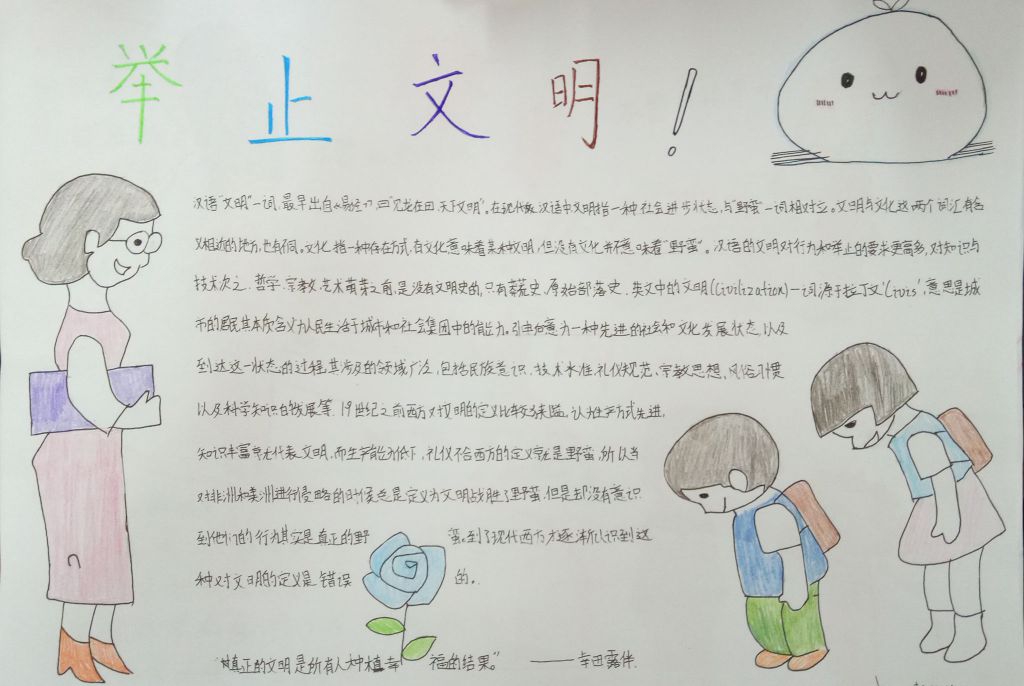 举止文明!
汉语"文明"一词,最早出自《易经》,曰"见龙在田,天下文明"。在现代汉语中文明指一种社会进步状态,与"野蛮"一词相对立。文明与文化这两个词汇有含
义相近的地方,也有不同。文化指一种存在方式,有文化意味着某种文明,但没有文化并不意味着"野蛮"。汉语的文明对行为和举止的要求更高多,对知识与
技术次之。哲学、宗教、艺术萌芽之前,是没有文明史的,只有蒙荒史、原始部落史。英文中的文明(Civilization)一词源于拉丁文'Civis',意思是城
市的居民,其本质含义为人民生活于城市和社会集团中的能力。引申后意为一种先进的社会和文化发展状态,以及
到达这一状态的过程,其涉及的领域广泛,包括民族意识、技术水准、礼仪规范、宗教思想、风俗习惯
以及科学知识的发展等。19世纪之前西方对文明的定义比较狭隘,认为生产方式先进,
知识丰富就代表文明,而生产能力低下,礼仪不合西方的定义就是野蛮,所以当
对非洲和美洲进行侵略的时候总是定义为文明战胜了野蛮,但是却没有意识
到他们的行为其实是真正的野蛮。到了现代西方才逐渐认识到这
种对文明的定义是错误的。
"真正的文明是所有人种植幸福的结果。"——幸田露伴